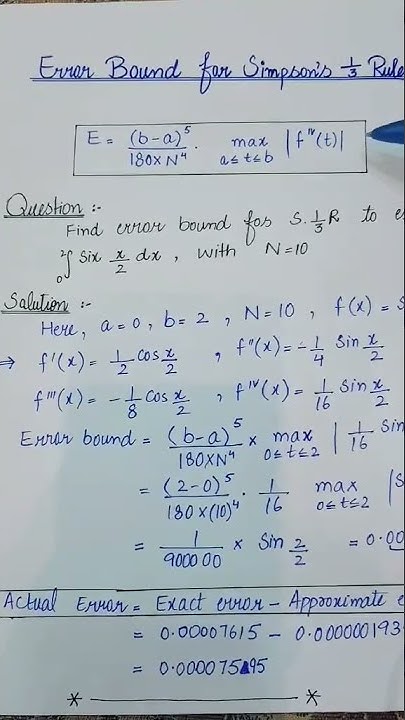 Error Bound for Simpson's 1/3 Rule
E = (b-a)⁵/180×N⁴ . max a≤t≤b |fᴵⱽ(t)|
Question :-
Find error bound for S.1/3R to
₀∫² Six x/2 dx , with N=10
Salution :-
Here, a=0, b=2 , N=10 , f(x) =
⇒ f'(x) = 1/2 cos x/2 , f"(x) = -1/4 Sin x/2
f'''(x) = -1/8 Cos x/2 , fᴵⱽ(x) = 1/16 Sin x/2
Error bound = (b-a)⁵/180×N⁴ × max 0≤t≤2 | 1/16 Sin
= (2-0)⁵/180×(10)⁴ . 1/16 max 0≤t≤2 |
= 1/900000 × Sin 2/2 = 0.00
Actual Error = Exact error - Approximate
= 0.00007615 - 0.000000193
= 0.000075195